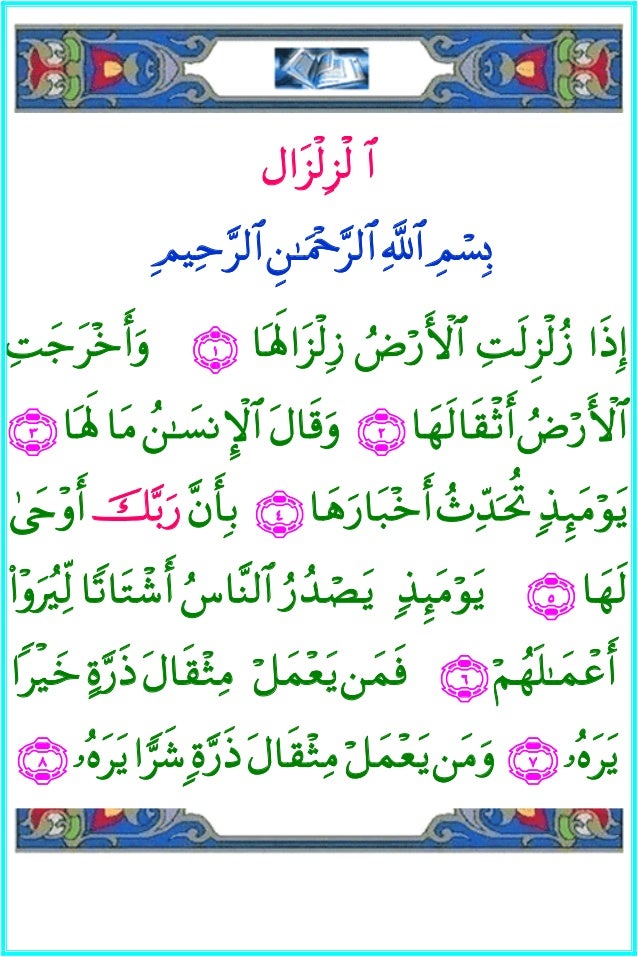 ٱ لْزِلْزَال
بِسْمِ ٱللَّهِ ٱلرَّحْمَـٰنِ ٱلرَّحِيمِ
إِذَا زُلْزِلَتِ ٱلْأَرْضُ زِلْزَالَهَا ١ وَأَخْرَجَتِ
ٱلْأَرْضُ أَثْقَالَهَا ٢ وَقَالَ ٱلْإِنسَـٰنُ مَا لَهَا ٣
يَوْمَئِذٍ تُحَدِّثُ أَخْبَارَهَا ٤ بِأَنَّ رَبَّكَ أَوْحَىٰ
لَهَا ٥ يَوْمَئِذٍ يَصْدُرُ ٱلنَّاسُ أَشْتَاتًا لِّيُرَوْا۟
أَعْمَـٰلَهُمْ ٦ فَمَن يَعْمَلْ مِثْقَالَ ذَرَّةٍ خَيْرًا
يَرَهُۥ ٧ وَمَن يَعْمَلْ مِثْقَالَ ذَرَّةٍ شَرًّا يَرَهُۥ ٨